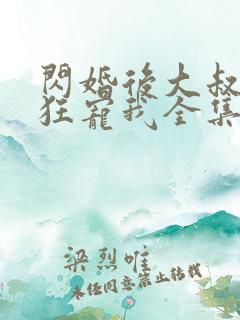 閃婚後大叔
狂寵我全集
梁烈唯
未经同意禁止转载